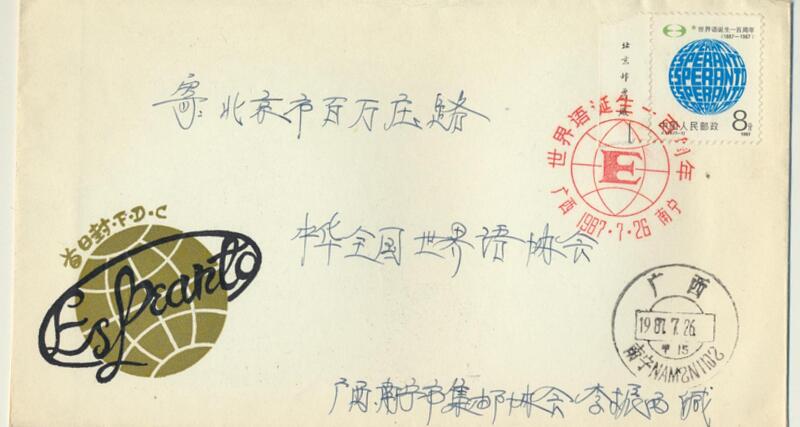 世界语诞生一百周年
(1887-1987)
ESPERANTO
ESPERANTO
ESPERANTO
中国人民邮政 8分
1987
寄: 北京市百万庄路
世界语诞生一百周年
E
广西 1987·7·26 南宁
首日封·F·D·C
Esperanto
中华全国世界语协会
广西
1987.7.26
甲 15
南宁
广西南宁市集邮协会 李振西缄